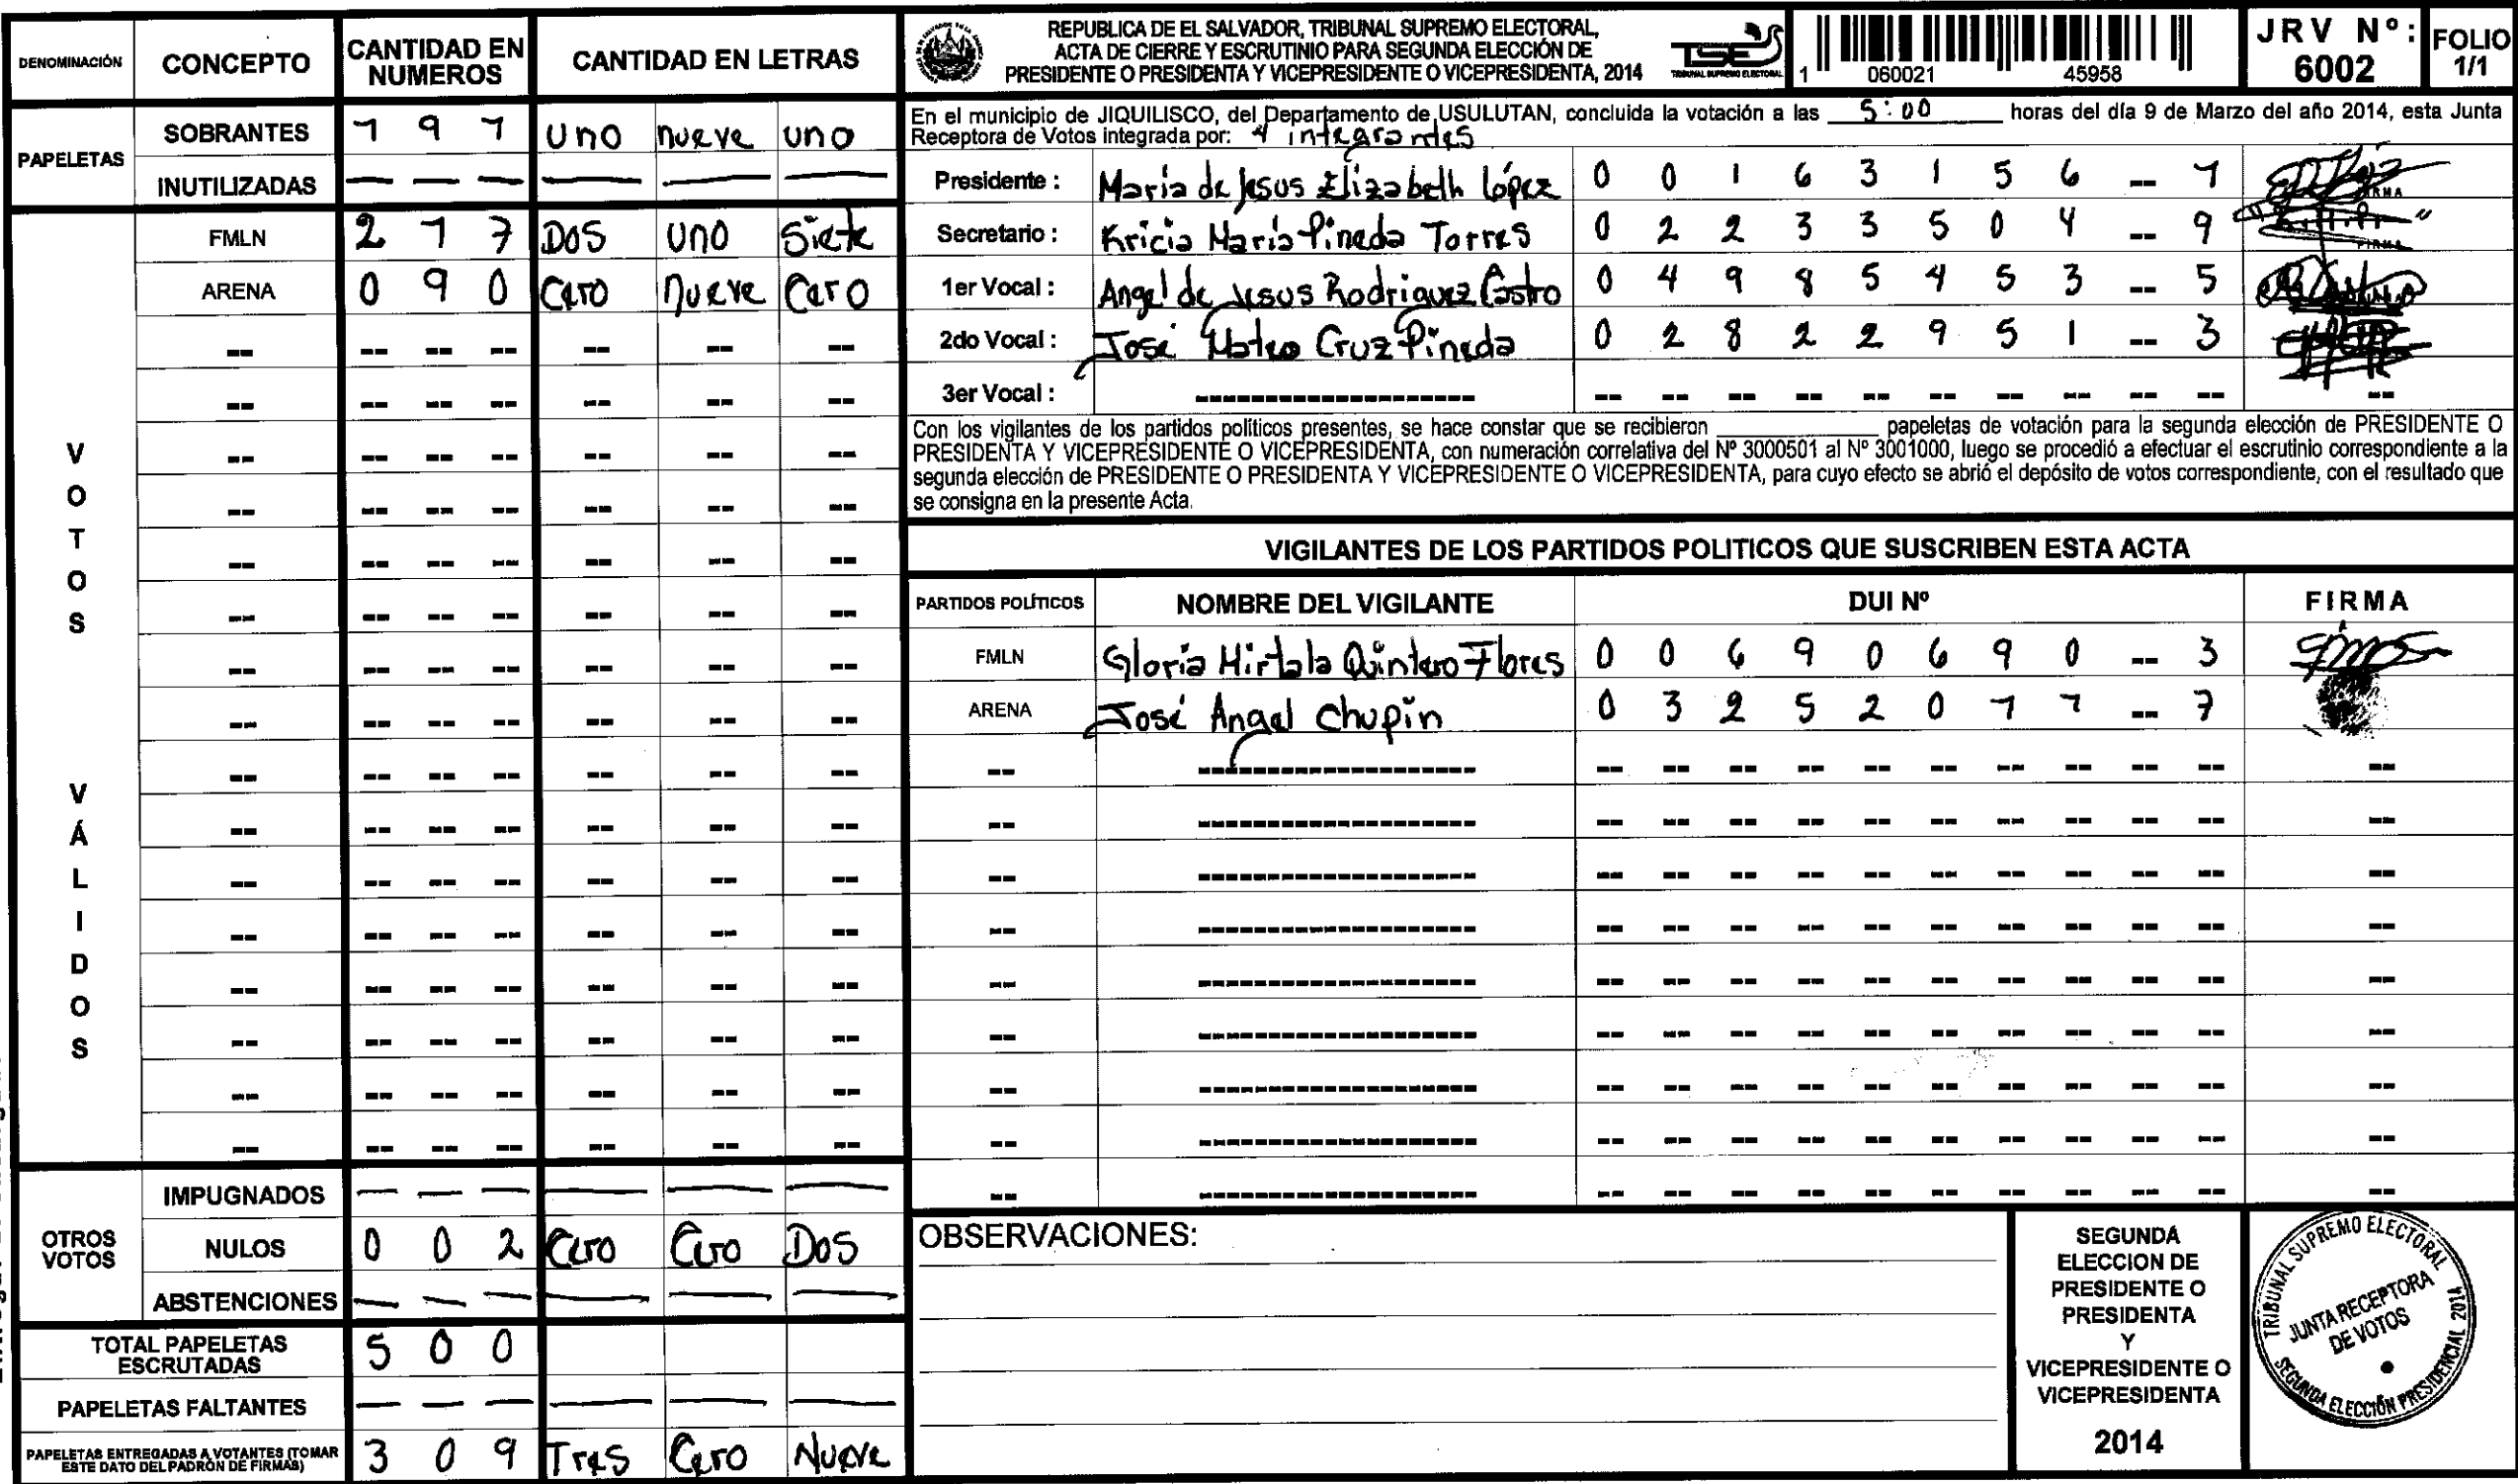 DENOMINACIÓN CONCEPTO CANTIDAD EN NUMEROS CANTIDAD EN LETRAS
PAPELETAS
SOBRANTES 1 9 1 uno nueve uno
INUTILIZADAS — — — — — —
VOTOS VÁLIDOS
FMLN 2 1 7 DOS UNO Siete
ARENA 0 9 0 Cero Nueve Cero
OTROS VOTOS
IMPUGNADOS — — — — — —
NULOS 0 0 2 Cero Cero Dos
ABSTENCIONES — — — — — —
TOTAL PAPELETAS ESCRUTADAS 5 0 0
PAPELETAS FALTANTES — — — — — —
PAPELETAS ENTREGADAS A VOTANTES (TOMAR ESTE DATO DEL PADRÓN DE FIRMAS) 3 0 9 Tres Cero Nueve
REPUBLICA DE EL SALVADOR, TRIBUNAL SUPREMO ELECTORAL,
ACTA DE CIERRE Y ESCRUTINIO PARA SEGUNDA ELECCIÓN DE
PRESIDENTE O PRESIDENTA Y VICEPRESIDENTE O VICEPRESIDENTA, 2014
TSE
TRIBUNAL SUPREMO ELECTORAL
1 060021 45958
JRV Nº: 6002
FOLIO 1/1
En el municipio de JIQUILISCO, del Departamento de USULUTAN, concluida la votación a las 5:00 horas del día 9 de Marzo del año 2014, esta Junta
Receptora de Votos integrada por: 4 integrantes
Presidente : María de Jesus Elizabeth López 0 0 1 6 3 1 5 6 -- 1
Secretario : Kricia María Pineda Torres 0 2 2 3 3 5 0 4 -- 9
1er Vocal : Angel de Jesus Rodriguez Castro 0 4 9 8 5 4 5 3 -- 5
2do Vocal : José Mateo Cruz Pineda 0 2 8 2 2 9 5 1 -- 3
3er Vocal :
Con los vigilantes de los partidos políticos presentes, se hace constar que se recibieron ____ papeletas de votación para la segunda elección de PRESIDENTE O
PRESIDENTA Y VICEPRESIDENTE O VICEPRESIDENTA, con numeración correlativa del Nº 3000501 al Nº 3001000, luego se procedió a efectuar el escrutinio correspondiente a la
segunda elección de PRESIDENTE O PRESIDENTA Y VICEPRESIDENTE O VICEPRESIDENTA, para cuyo efecto se abrió el depósito de votos correspondiente, con el resultado que
se consigna en la presente Acta.
VIGILANTES DE LOS PARTIDOS POLITICOS QUE SUSCRIBEN ESTA ACTA
PARTIDOS POLÍTICOS NOMBRE DEL VIGILANTE DUI Nº FIRMA
FMLN Gloria Hirtala Quintero Flores 0 0 6 9 0 6 9 0 -- 3
ARENA José Angel Chupin 0 3 2 5 2 0 1 1 -- 7
OBSERVACIONES:
SEGUNDA
ELECCION DE
PRESIDENTE O
PRESIDENTA
Y
VICEPRESIDENTE O
VICEPRESIDENTA
2014
TRIBUNAL SUPREMO ELECTORAL
JUNTA RECEPTORA
DE VOTOS
SEGUNDA ELECCIÓN PRESIDENCIAL 2014